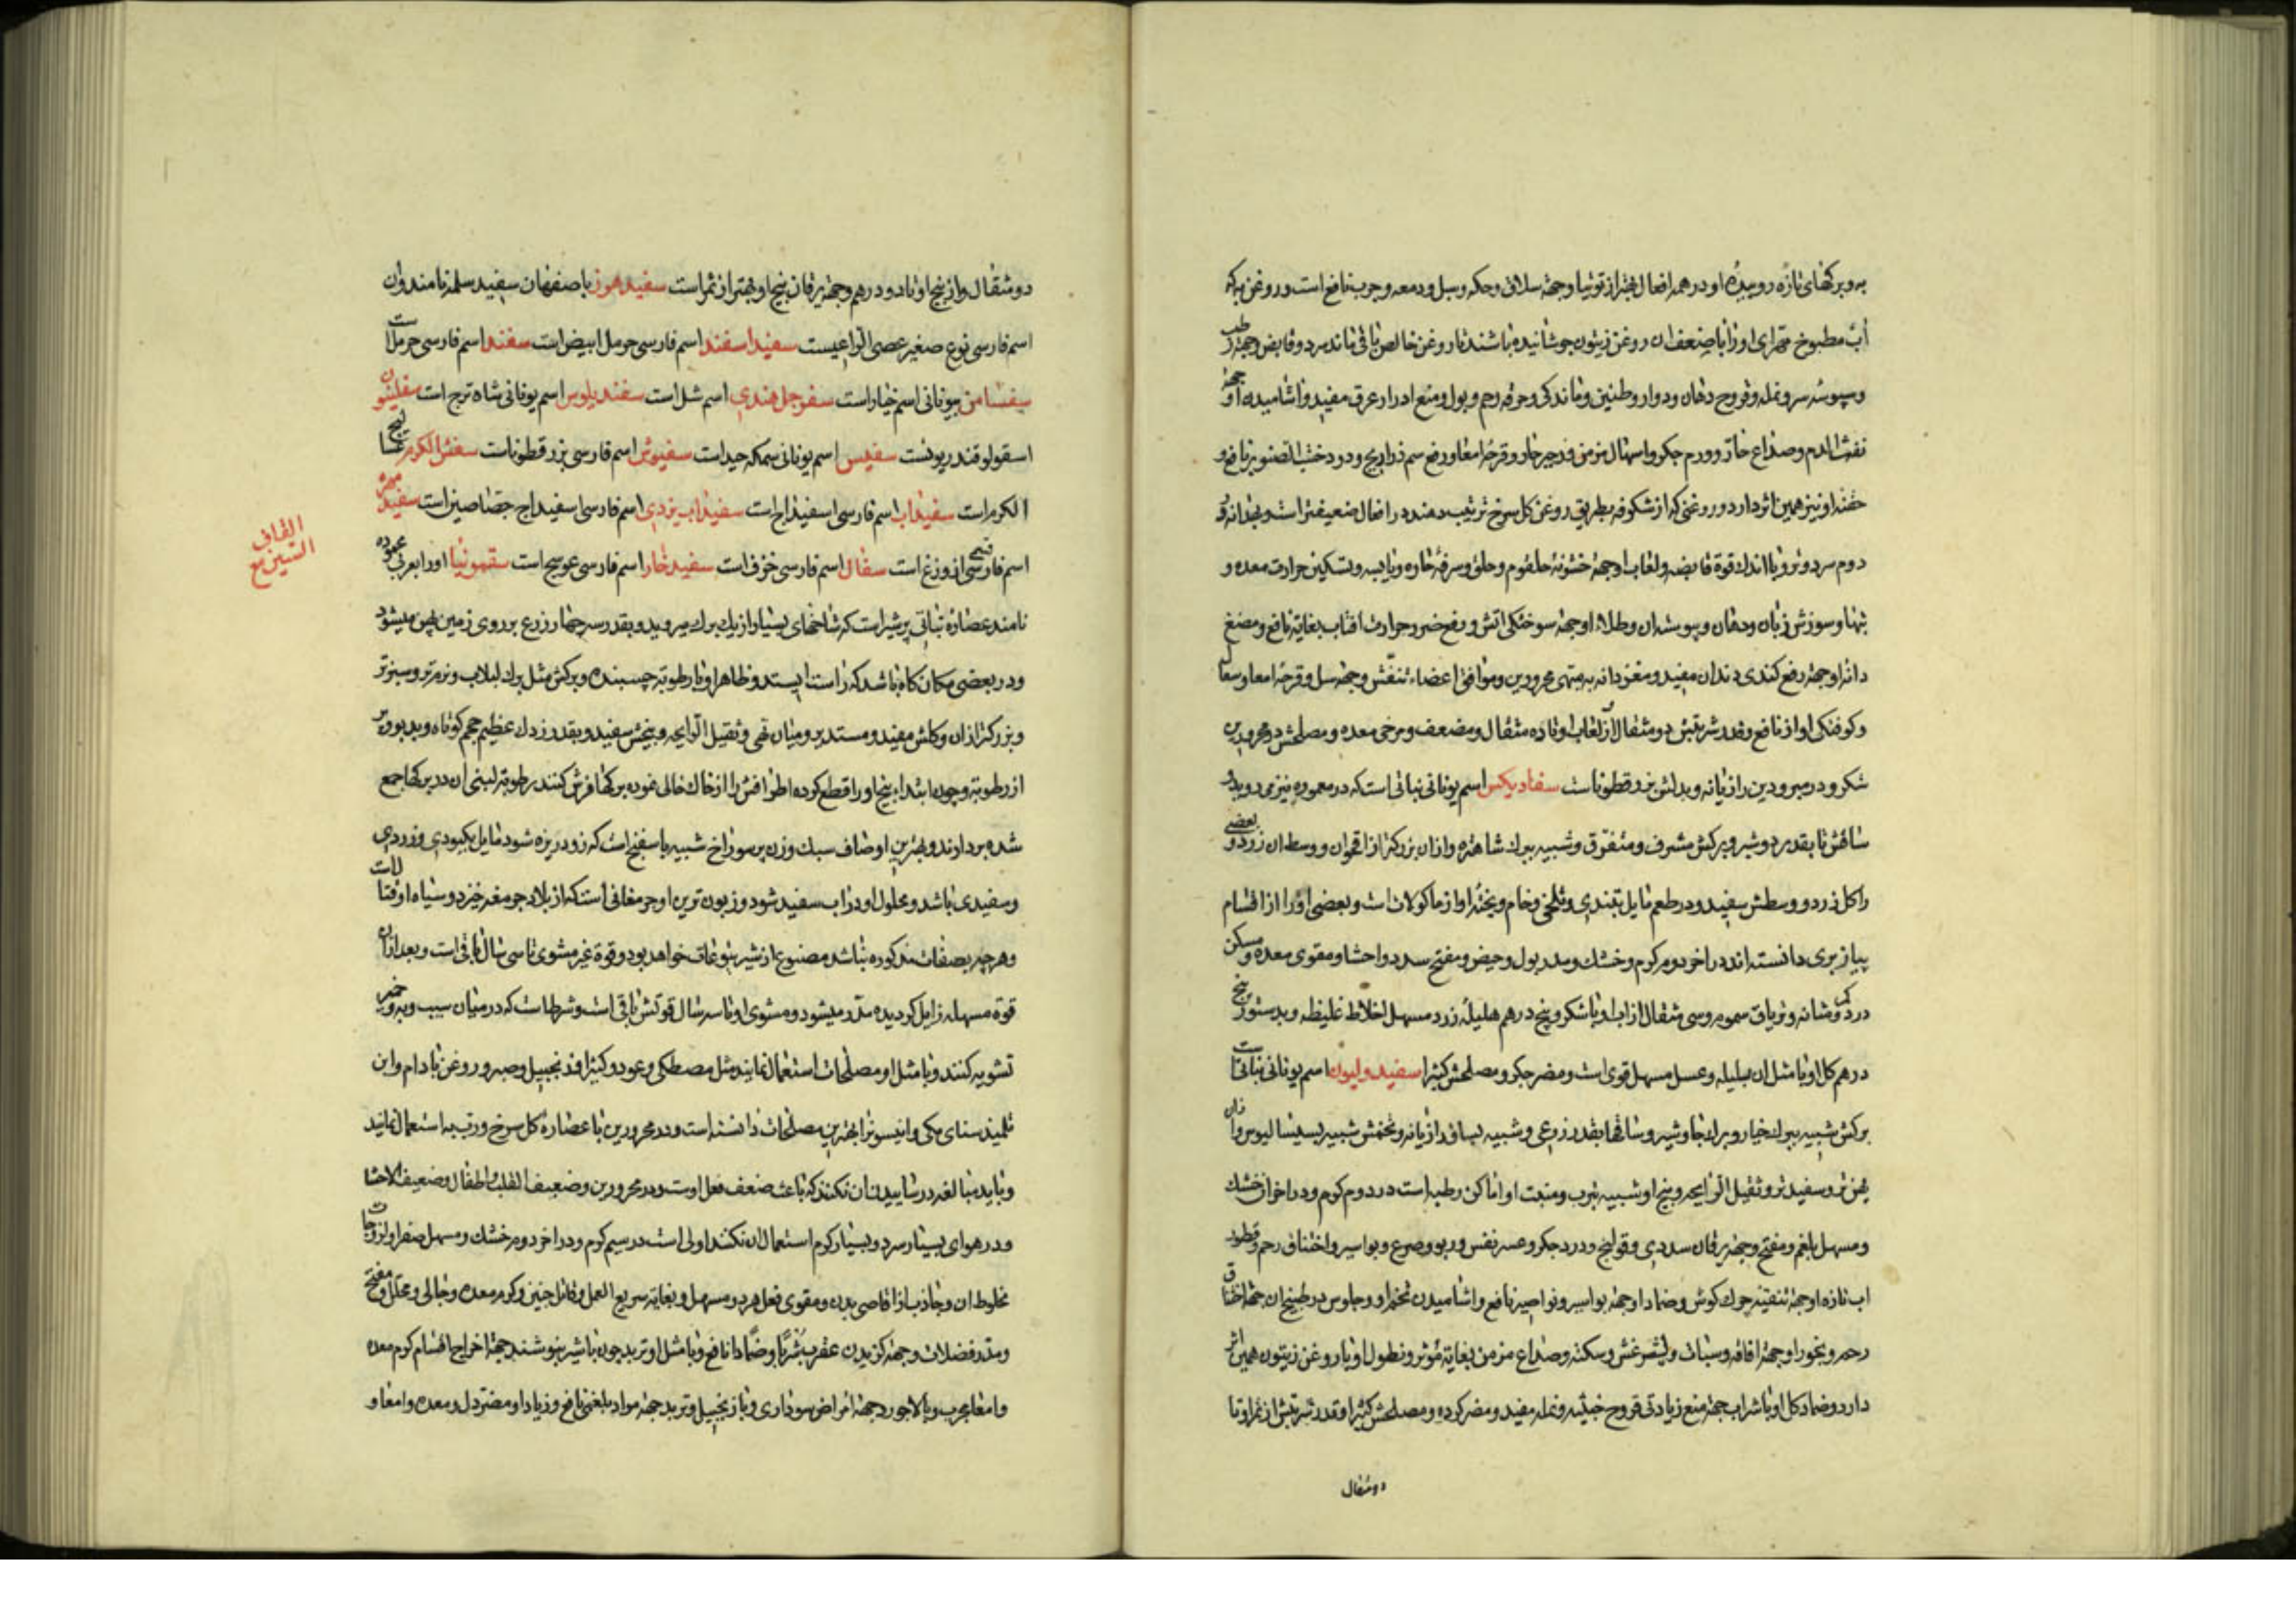 به و برکهای تازه روییده او در همه افعال بهتر از توتیا و جهة سلاق و حکه و سبل و دمعه و جرب نافع است و روغن به که
آب مطبوخ مهرای او را با ضعف ان روغن زیتون جوشانیده باشند تا روغن خالص باقی ماند سرد و قابض و جهة
و سبوسه سر و نمله و قروح دهان و دوار و طنین و ماندکی و حرقه رحم و بول و منع ادرار عرق مفید و اشامیدن او جهة
نفث الدم و صداع حار و ورم جکر و اسهال مزمن و زحیر حار و قرحه امعا و رفع سم ذراریح و دود خشب الصنوبر نافع و
حقنه او نیز همین اثر دارد و روغنی که از شکوفه بطریق روغن کل سرخ ترتیب دهند در افعال ضعیفتر است و بهدانه در
دوم سرد و تر و با اندک قوة قابضه و لعاب او جهة خشونة حلقوم و حلق و سرفه حاره و یابسه و تسکین حرارت معده و
تبها و سوزش زبان و دهان و یبوست ان و طلاء او جهة سوختکی اتش و رفع ضرر حرارت افتاب بغایة نافع و مضغ
دانه او جهة رفع کندی دندان مفید و مغز دانه به مبهی محرورین و موافق اعضاء تنفس و جهة سل و قرحه امعا و سعال
و کوفتکی اواز نافع و قدر شربتش دو مثقال و از لعاب او تا ده مثقال و مضعف و مرخی معده و مصلحش در محرورین
شکر و در مبرودین رازیانه و بدلش بزر قطونا است سفادیکس اسم یونانی نباتی است که در معموره نیز می روید
ساقش تا بقدر دو شبر و برکش مشرف و متفرق و شبیه ببرک شاهتره و ازان بزرکتر از اقحوان و وسط ان زرد و بعضی
را کل زرد و وسطش سفید و در طعم مایل بتندی و تلخی و خام و پخته او از ماکولات است و بعضی او را از اقسام
پیاز بری دانسته اند در اخر دوم کرم و خشک و مدر بول و حیض و مفتح سدد و احشا و مقوی معده و مسکن
درد کرده و مثانه و تریاق سموم و سی مثقال از اب او با شکر و پنج درهم هلیله زرد مسهل اخلاط غلیظه و بدستور پنج
درهم کل او با مثل ان بلیله و عسل مسهل قوی است و مضر جکر و مصلحش کثیرا سفیدولیون اسم یونانی نباتی است
برکش شبیه ببرک خیار و برک جاوشیر و ساقها بقدر ذرعی و شبیه بساق رازیانه و تخمش شبیه بسیسالیوس و ازان
پهن تر و سفیدتر و ثقیل الرایحه و بیخ او شبیه بترب و منبت او اماکن رطبه است در دوم کرم و در اخر ان خشک
و مسهل بلغم و مفتح و جهة یرقان سددی و قولنج و درد جکر و عسر نفس و ربو و صرع و بواسیر و اختناق رحم و قطور
اب تازه او جهة تنقیه چرک کوش و ضماد او جهة بواسیر و نواصیر نافع و اشامیدن تخم او و جلوس در طبیخ ان جهة اختناق
رحم و بخور او جهة افاقه و سبات و لیثرغس و سکته و صداع مزمن بغایة مؤثر و نطول او با روغن زیتون همین اثر
دارد و ضماد کل او با شراب جهة منع زیادتی قروح خبیثه و نمله مفید و مضر کرده و مصلحش کثیرا و قدر شربتش از ثمر او تا
دو مثقال
دو مثقال و از بیخ او تا دو درهم و جهة یرقان بیخ او بهتر از ثمر است سفید هوز باصفهان سفید سلمه نامند و ان
اسم فارسی نوع صغیر عصی الراعیست سفید اسفند اسم فارسی حرمل ابیض است سفند اسم فارسی حرمل است
سفسامن بیونانی اسم خیار است سفرجل هندی اسم شل است سفندیلوس اسم یونانی شاه ترج است سفلینون
اسقولوقندریونست سفیس اسم یونانی سمکه صید است سفیوش اسم فارسی بزر قطونا است سفش الکرم عسالیج
الکرم است سفیداب اسم فارسی اسفیداج است سفیداب یزدی اسم فارسی اسفیداج جصاصین است سفید مهره
اسم فارسی از وزغ است سفال اسم فارسی خزف است سفید خار اسم فارسی عوسج است سقمونیا او را بعربی محموده
القاف
السین مع
نامند عصارۀ نباتی پرشیر است که شاخهای بسیار از یک برک میروید و بقدر سه چهار ذرع بر روی زمین پهن میشود
و در بعضی مکان کاه باشد که راست ایستد و ظاهر او با رطوبة چسبنده و برکش مثل برک لبلاب و نرم تر و سبزتر
و بزرکتر ازان و کلش سفید و مستدیر و میان تهی و ثقیل الرایحه و بیخش سفید و بقدر زردک عظیم حجم کوتاه و بدبو و پر
از رطوبة و چون ابتداء بیخ او را قطع کرده اطرافش را از خاک خالی نموده برکها فرش کنند رطوبة لبنی ان در برکها جمع
شده بردارند و بهترین اوصاف سبک وزن پر سوراخ شبیه باسفنج است که زود ریزه شود مایل بکبودی و زردی
و سفیدی باشد و محلول او در اب سفید شود و زبون ترین او جرمقانی است که از بلاد جرمغه خیزد و سیاه او قتالست
و هرچه بصفات مذکوره نباشد مصنوع از شیر یتوعات خواهد بود و قوة غیر مشوی تا سی سال باقی است و بعد ازان
قوة مسهله زایل کردیده مدر میشود و مشوی او تا سه سال قوتش باقی است و شرط است که در میان سیب و به و خمیر
تشویه کنند و با مثل او مصلحات استعمال نمایند مثل مصطکی و عود و کثیرا و زنجبیل و صبر و روغن بادام و ابن
تلمیذ سنای مکی و انیسون را بهترین مصلحات دانسته است و در محرورین با عصارۀ کل سرخ و رب به استعمال نمایند
و باید مبالغه در ساییدن ان نکنند که باعث ضعف فعل اوست و در محرورین و ضعیف القلب و اطفال و ضعیف الاحشا
و در هوای بسیار سرد و بسیار کرم استعمال ان نکنند اولی است در سیم کرم و در اخر دوم خشک و مسهل صفرا و لزوجات
مخلوط ان و جاذب از اقاصی بدن و مقوی فعل هر دو مسهل و بغایة سریع العمل و قاتل جنین و کرم معده و جالی و محلل و مفتح
و مدر فضلات و جهة کزیدن عقرب شربا و ضمادا نافع و با مثل او تربد چون با شیر بنوشند جهة اخراج اقسام کرم معده
و امعا مجرب و با لاجورد جهة امراض سوداوی و با زنجبیل و تربد جهة مواد بلغمی نافع و زیاد او مضر دل و معده و امعا و